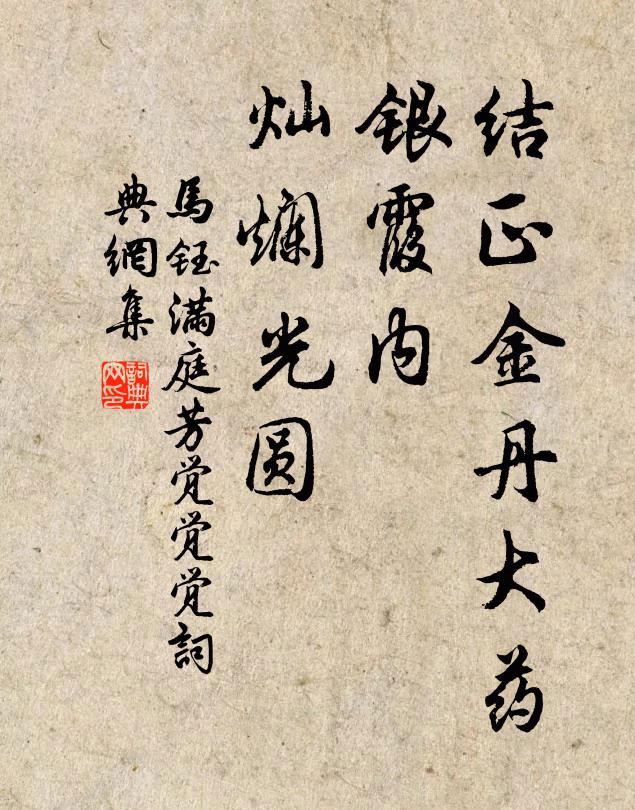 结正金丹大药
银霞内
灿斓光圆
馬钰满庭芳觉觉觉詞
典網集
詞典
网印